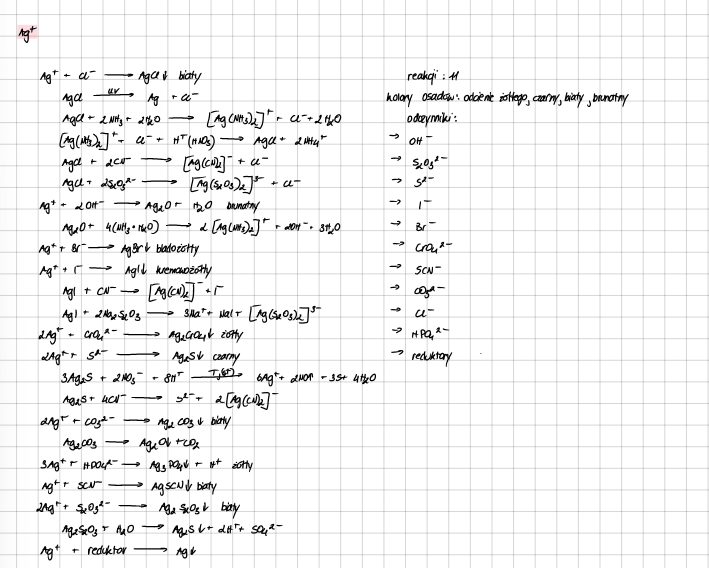 Ag⁺
Ag⁺ + Cl⁻ → AgCl↓ biały
AgCl —uv→ Ag + Cl⁻
AgCl + 2NH₃ + 2H₂O → [Ag(NH₃)₂]⁺ + Cl⁻ + 2H₂O
[Ag(NH₃)₂]⁺ + Cl⁻ + H⁺(HNO₃) → AgCl + 2NH₄⁺
AgCl + 2CN⁻ → [Ag(CN)₂]⁻ + Cl⁻
AgCl + 2S₂O₃²⁻ → [Ag(S₂O₃)₂]³⁻ + Cl⁻
Ag⁺ + 2OH⁻ → Ag₂O + H₂O brunatny
Ag₂O + 4(NH₃·H₂O) → 2[Ag(NH₃)₂]⁺ + 2OH⁻ + 3H₂O
Ag⁺ + Br⁻ → AgBr↓ bladożółty
Ag⁺ + I⁻ → AgI↓ kremowożółty
AgI + CN⁻ → [Ag(CN)₂]⁻ + I⁻
AgI + 2Na₂S₂O₃ → 3Na⁺ + NaI + [Ag(S₂O₃)₂]³⁻
2Ag⁺ + CrO₄²⁻ → Ag₂CrO₄↓ żółty
2Ag⁺ + S²⁻ → Ag₂S↓ czarny
3Ag₂S + 2NO₃⁻ + 8H⁺ → 6Ag⁺ + 2NO↑ + 3S + 4H₂O
Ag₂S + 4CN⁻ → S²⁻ + 2[Ag(CN)₂]⁻
2Ag⁺ + CO₃²⁻ → Ag₂CO₃↓ biały
Ag₂CO₃ → Ag₂O↓ + CO₂
3Ag⁺ + HPO₄²⁻ → Ag₃PO₄↓ + H⁺ żółty
Ag⁺ + SCN⁻ → AgSCN↓ biały
2Ag⁺ + S₂O₃²⁻ → Ag₂S₂O₃↓ biały
Ag₂S₂O₃ + H₂O → Ag₂S↓ + 2H⁺ + SO₄²⁻
Ag⁺ + reduktor → Ag↓
reakcji: 11
kolory osadów: odcienie żółtego, czarny, biały, brunatny
odczynniki:
→ OH⁻
→ S₂O₃²⁻
→ S²⁻
→ I⁻
→ Br⁻
→ CrO₄²⁻
→ SCN⁻
→ CO₃²⁻
→ Cl⁻
→ HPO₄²⁻
→ reduktory